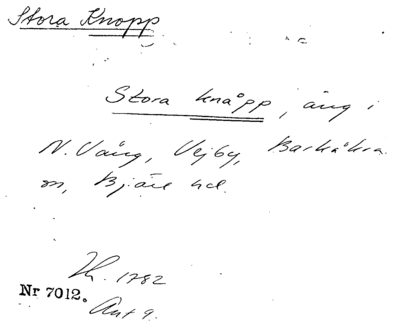 Stora Knopp
Stora knåpp, äng i
N. Vång, Vejby, Barkåkra
sn, Bjäre hd.
1782
Nr 7012.
Akt 9.